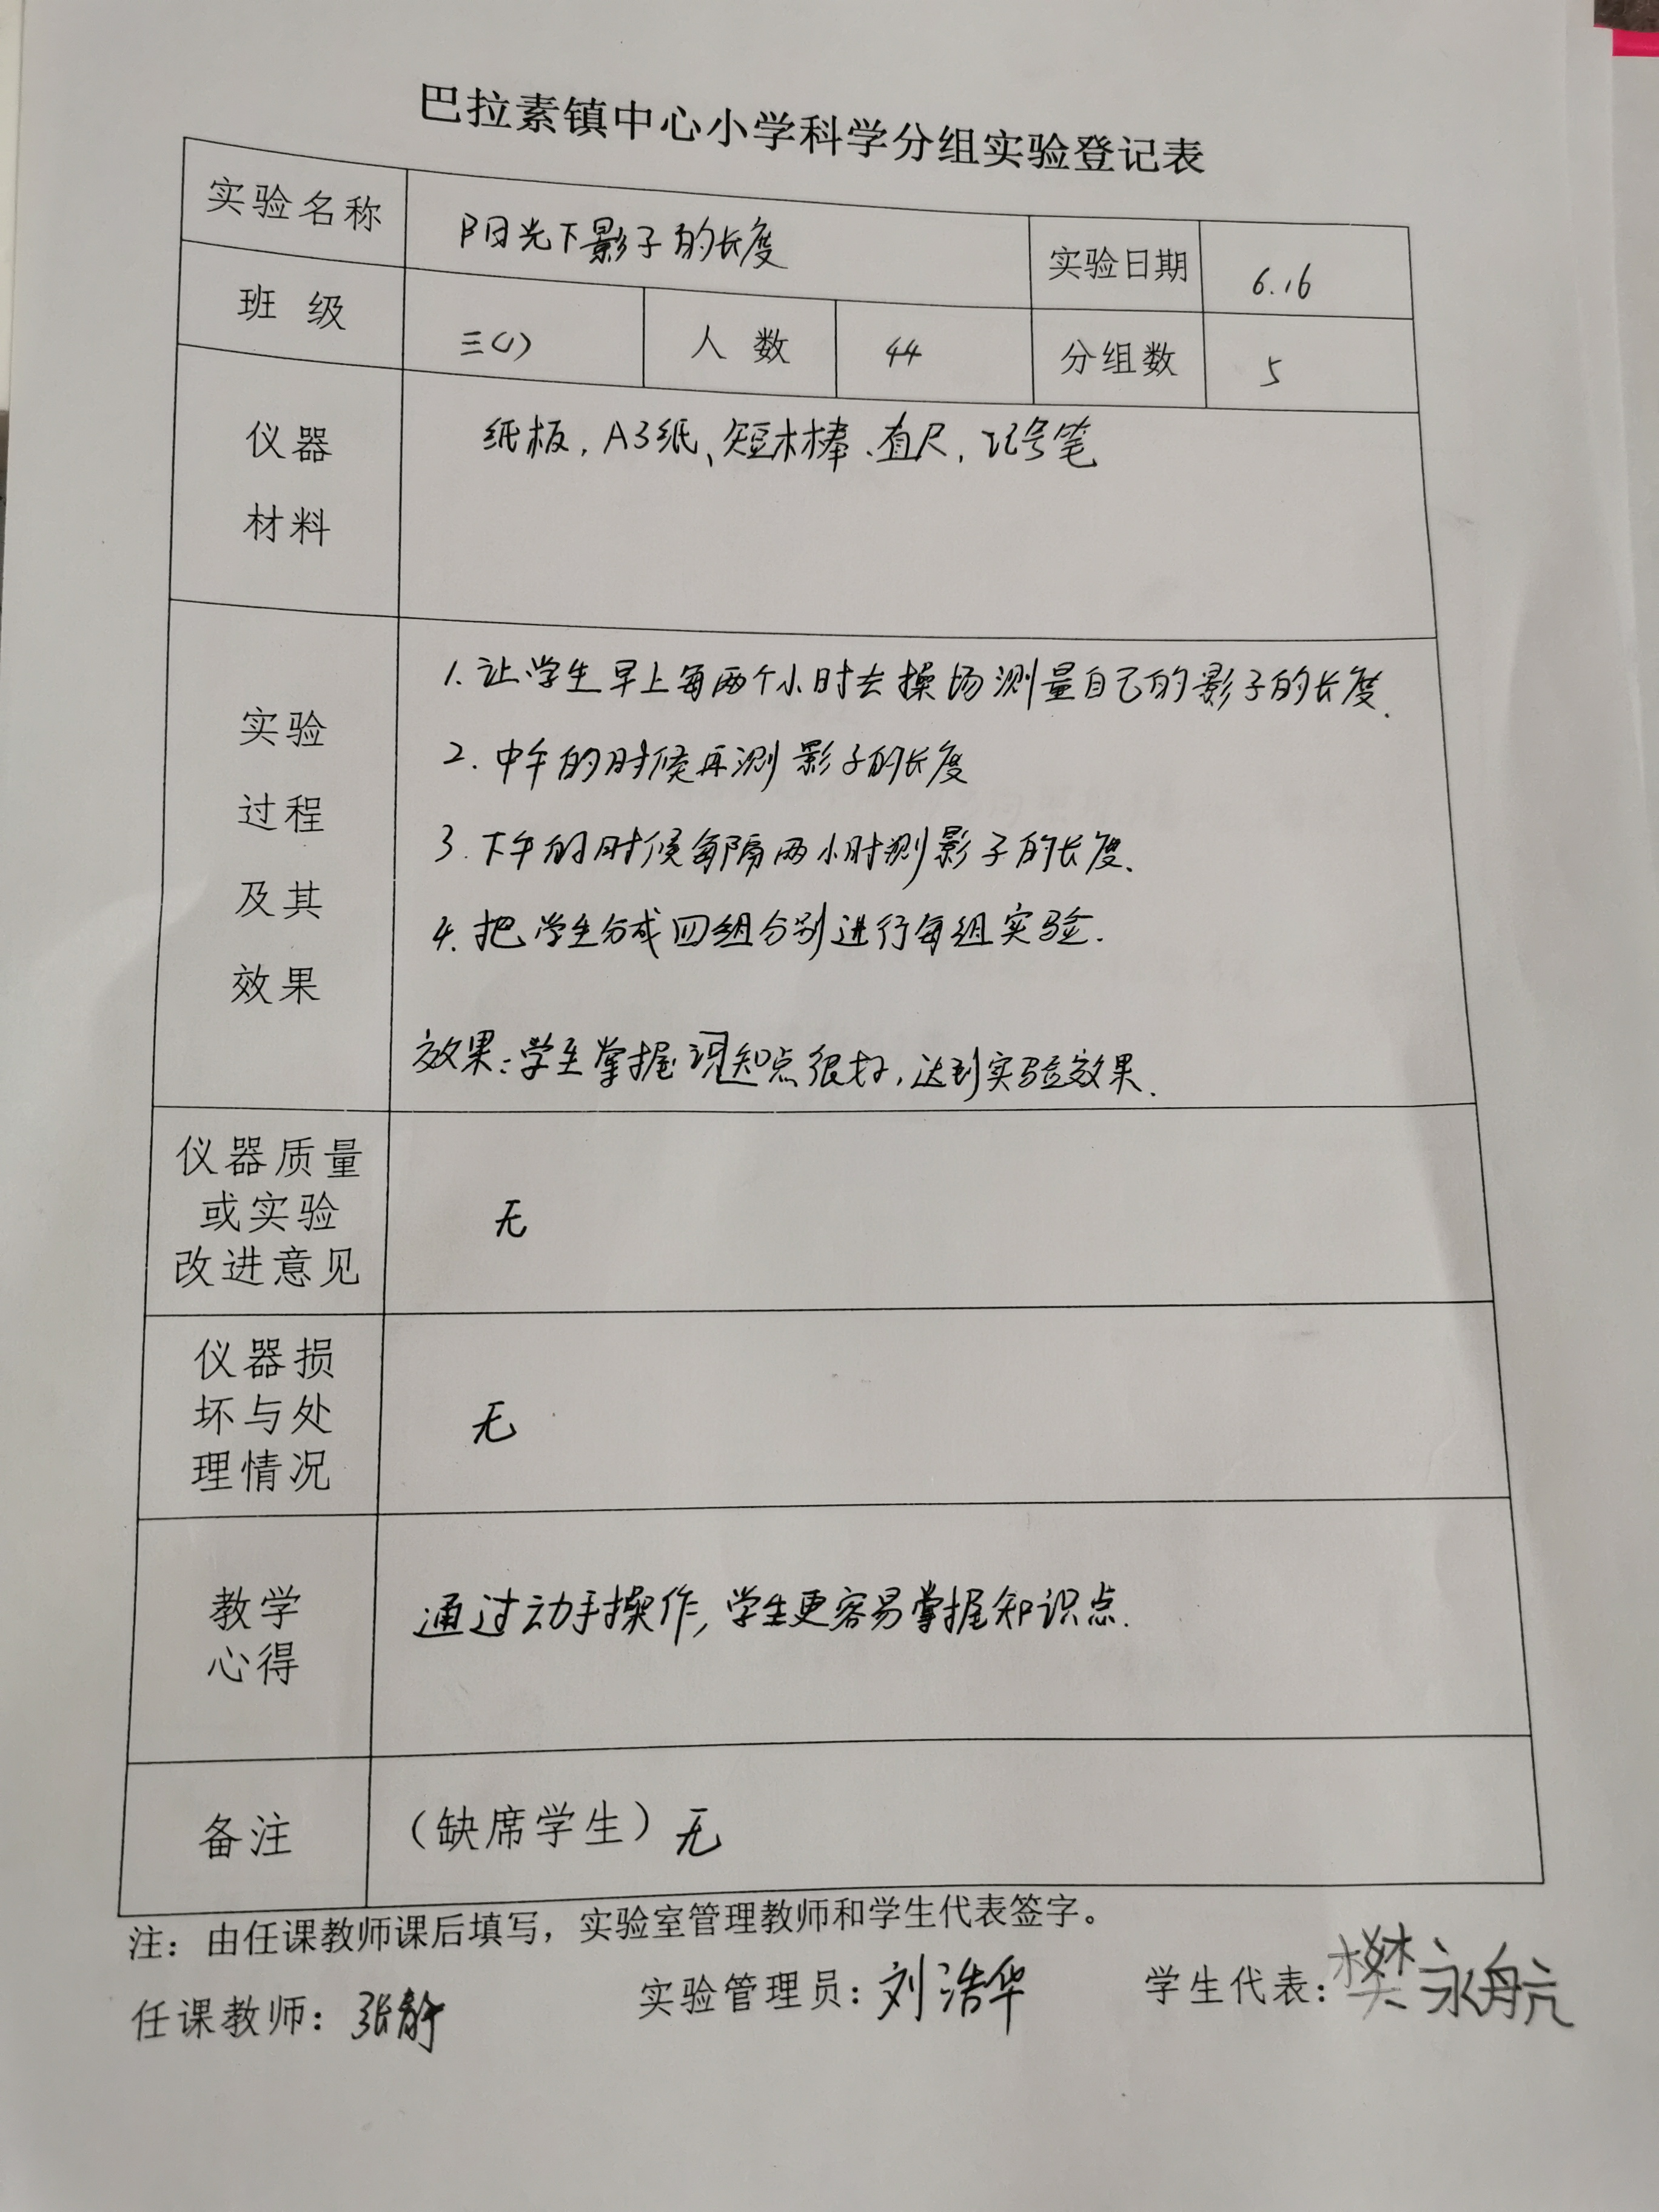 巴拉素镇中心小学科学分组实验登记表
实验名称 阳光下影子的长度 实验日期 6.16
班级 三(1) 人数 44 分组数 5
仪器
材料
纸板，A3纸、短木棒、直尺，记号笔
实验
过程
及其
效果
1. 让学生早上每两个小时去操场测量自己的影子的长度.
2. 中午的时候再测影子的长度
3. 下午的时候每隔两小时测影子的长度.
4. 把学生分成四组分别进行每组实验.
效果：学生掌握知点很好，达到实验效果.
仪器质量
或实验
改进意见
无
仪器损
坏与处
理情况
无
教学
心得
通过动手操作，学生更容易掌握知识点.
备注 （缺席学生）无
注：由任课教师课后填写，实验室管理教师和学生代表签字。
任课教师：张静 实验管理员：刘浩华 学生代表：樊永航